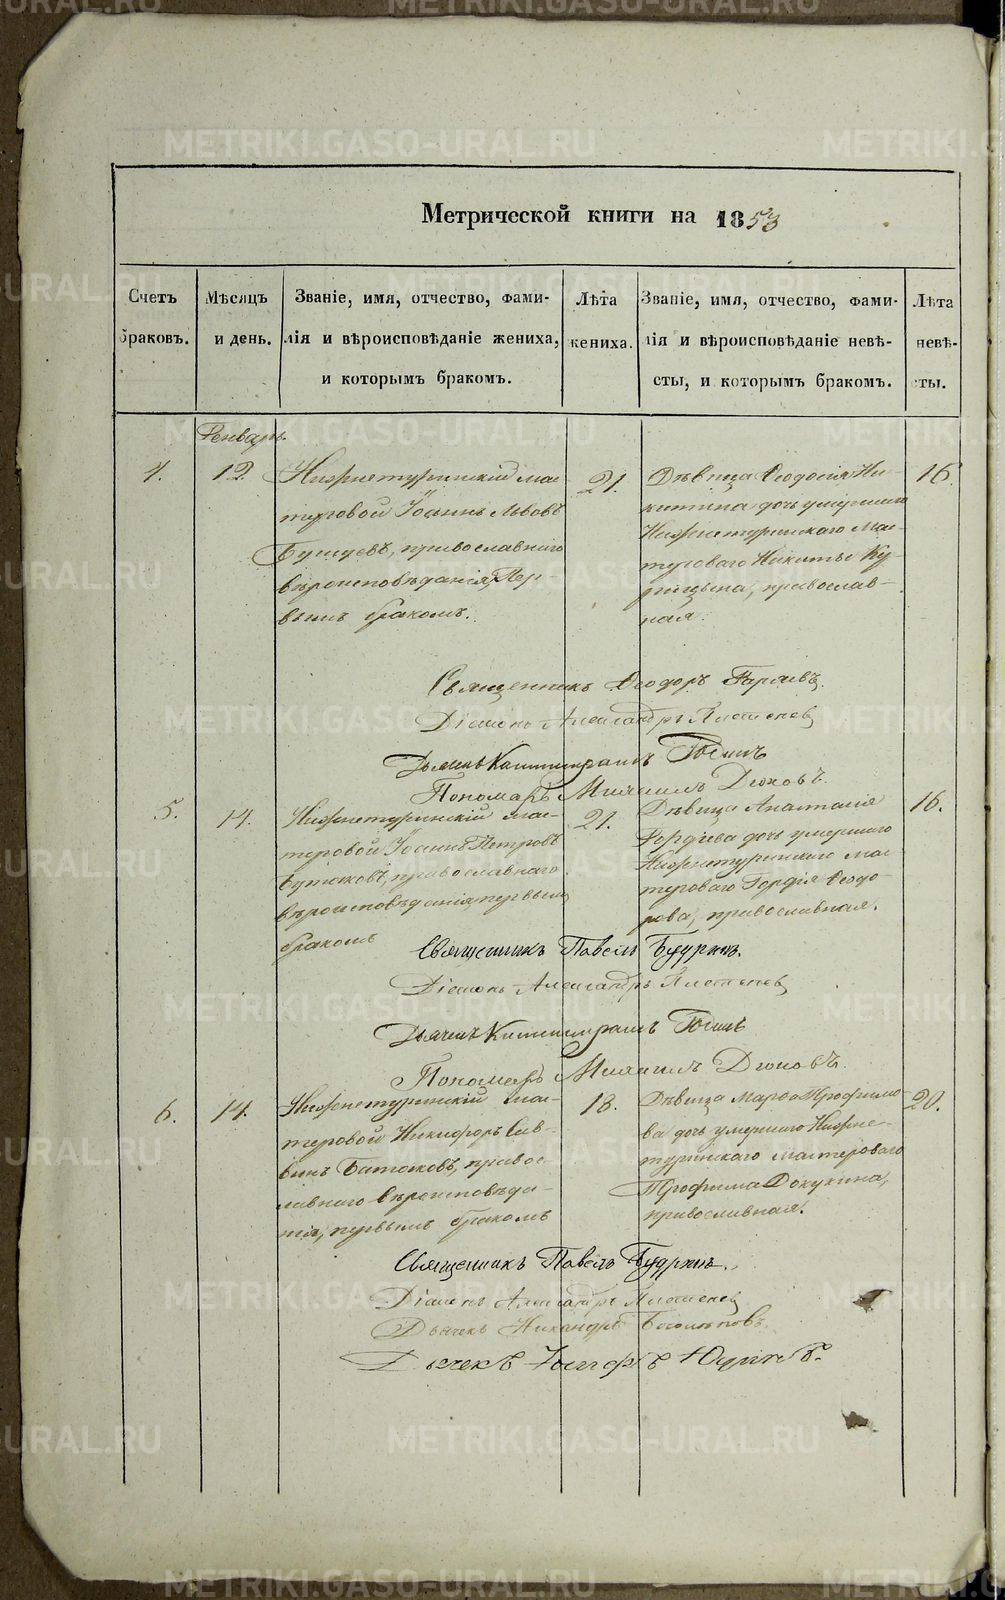 METRIKI.GASO-URAL.RU
Метрической книги на 1853
Счетъ браковъ.
Мѣсяцъ и день.
Званіе, имя, отчество, фами-
лія и вѣроисповѣданіе жениха,
и которымъ бракомъ.
Лѣта
жениха.
Званіе, имя, отчество, фами-
лія и вѣроисповѣданіе невѣ-
сты, и которымъ бракомъ.
Лѣта
невѣ-
сты.
Январь.
4.
12.
Нижнетуринскій мас-
теровой Іоаннъ Львовъ
православнаго
вѣроисповѣданія, Пер-
вымъ бракомъ.
21.
Дѣвица Ѳеодосія Ни-
китина дочь умершаго
Нижнетуринскаго Мас-
тероваго Никиты
православ-
ная.
16.
Священникъ Ѳеодоръ
Діаконъ Александръ
Дьячекъ
Пономарь Михаилъ
5.
14.
Нижнетуринскій Мас-
теровой Іоаннъ Петровъ
Бутаковъ, православнаго
вѣроисповѣданія, первымъ
бракомъ
21.
Дѣвица Анастасія
Гордѣева дочь умершаго
Нижнетуринскаго Мас-
тероваго Гордія Ѳеодо-
рова, православная.
16.
Священникъ Павелъ Будринъ.
Діаконъ Александръ
Дьячекъ
Пономарь Михаилъ
6.
14.
Нижнетуринскій Мас-
теровой Никифоръ Сав-
винъ Батаковъ, правос-
лавнаго вѣроисповѣда-
нія, первымъ бракомъ
18.
Дѣвица Марѳа Трофимо-
ва дочь умершаго Нижне-
туринскаго мастероваго
Трофима Докукина,
православная.
20.
Священникъ Павелъ Будринъ.
Діаконъ Александръ
Дьячекъ Никандръ
Дьячекъ Іосифъ